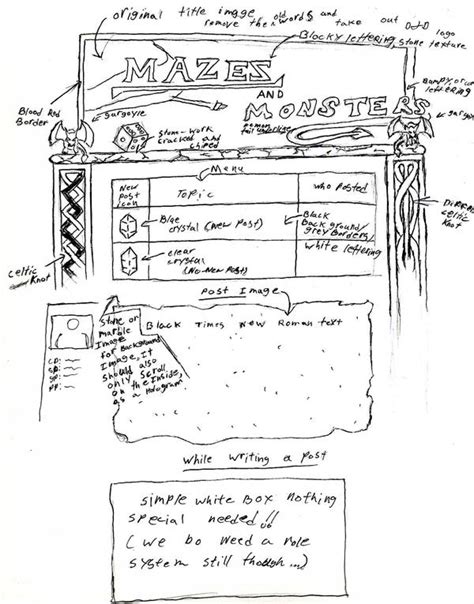 original title image
remove the old words and take out D&D logo
Blocky lettering, stone texture
MAZES
AND
MONSTERS
lettering
Blood Red
Border
gargoyle
stone-work
cracked and
chiped
Menu
New
Post
icon
Topic
who posted
Blue
crystal (new Post)
Black
Back ground/
grey Borders/
white lettering
clear
crystal
(No-New Post)
celtic
knot
celtic Knot
Post Image
Stone or
marble
Image
for Background
Image, It
should also
only Scroll
on the Inside,
as a Hologram
Black Times New Roman text
While writing a post
simple white Box nothing
special needed!!
(we do need a role
system still though...)